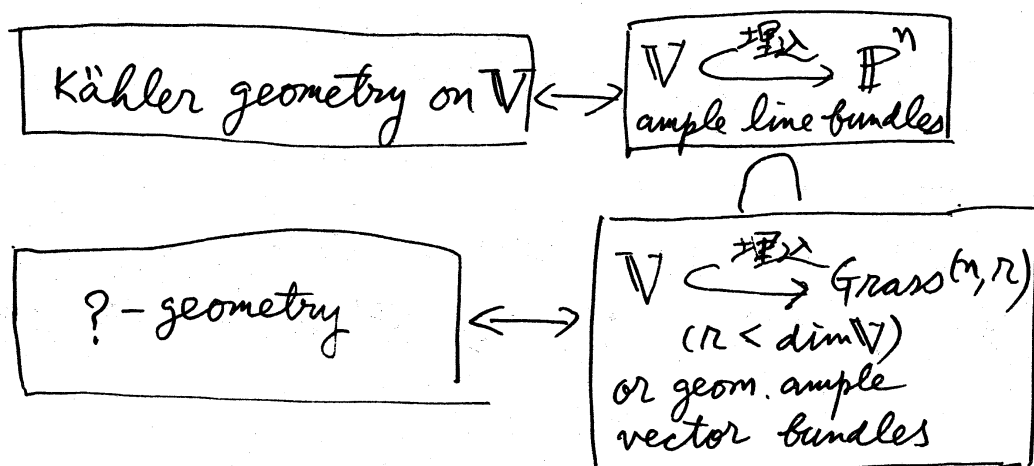 Kähler geometry on 𝕍
𝕍 埋込 ℙⁿ
ample line bundles
? - geometry
𝕍 埋込 Grass(n, r)
(r < dim 𝕍)
or geom. ample
vector bundles